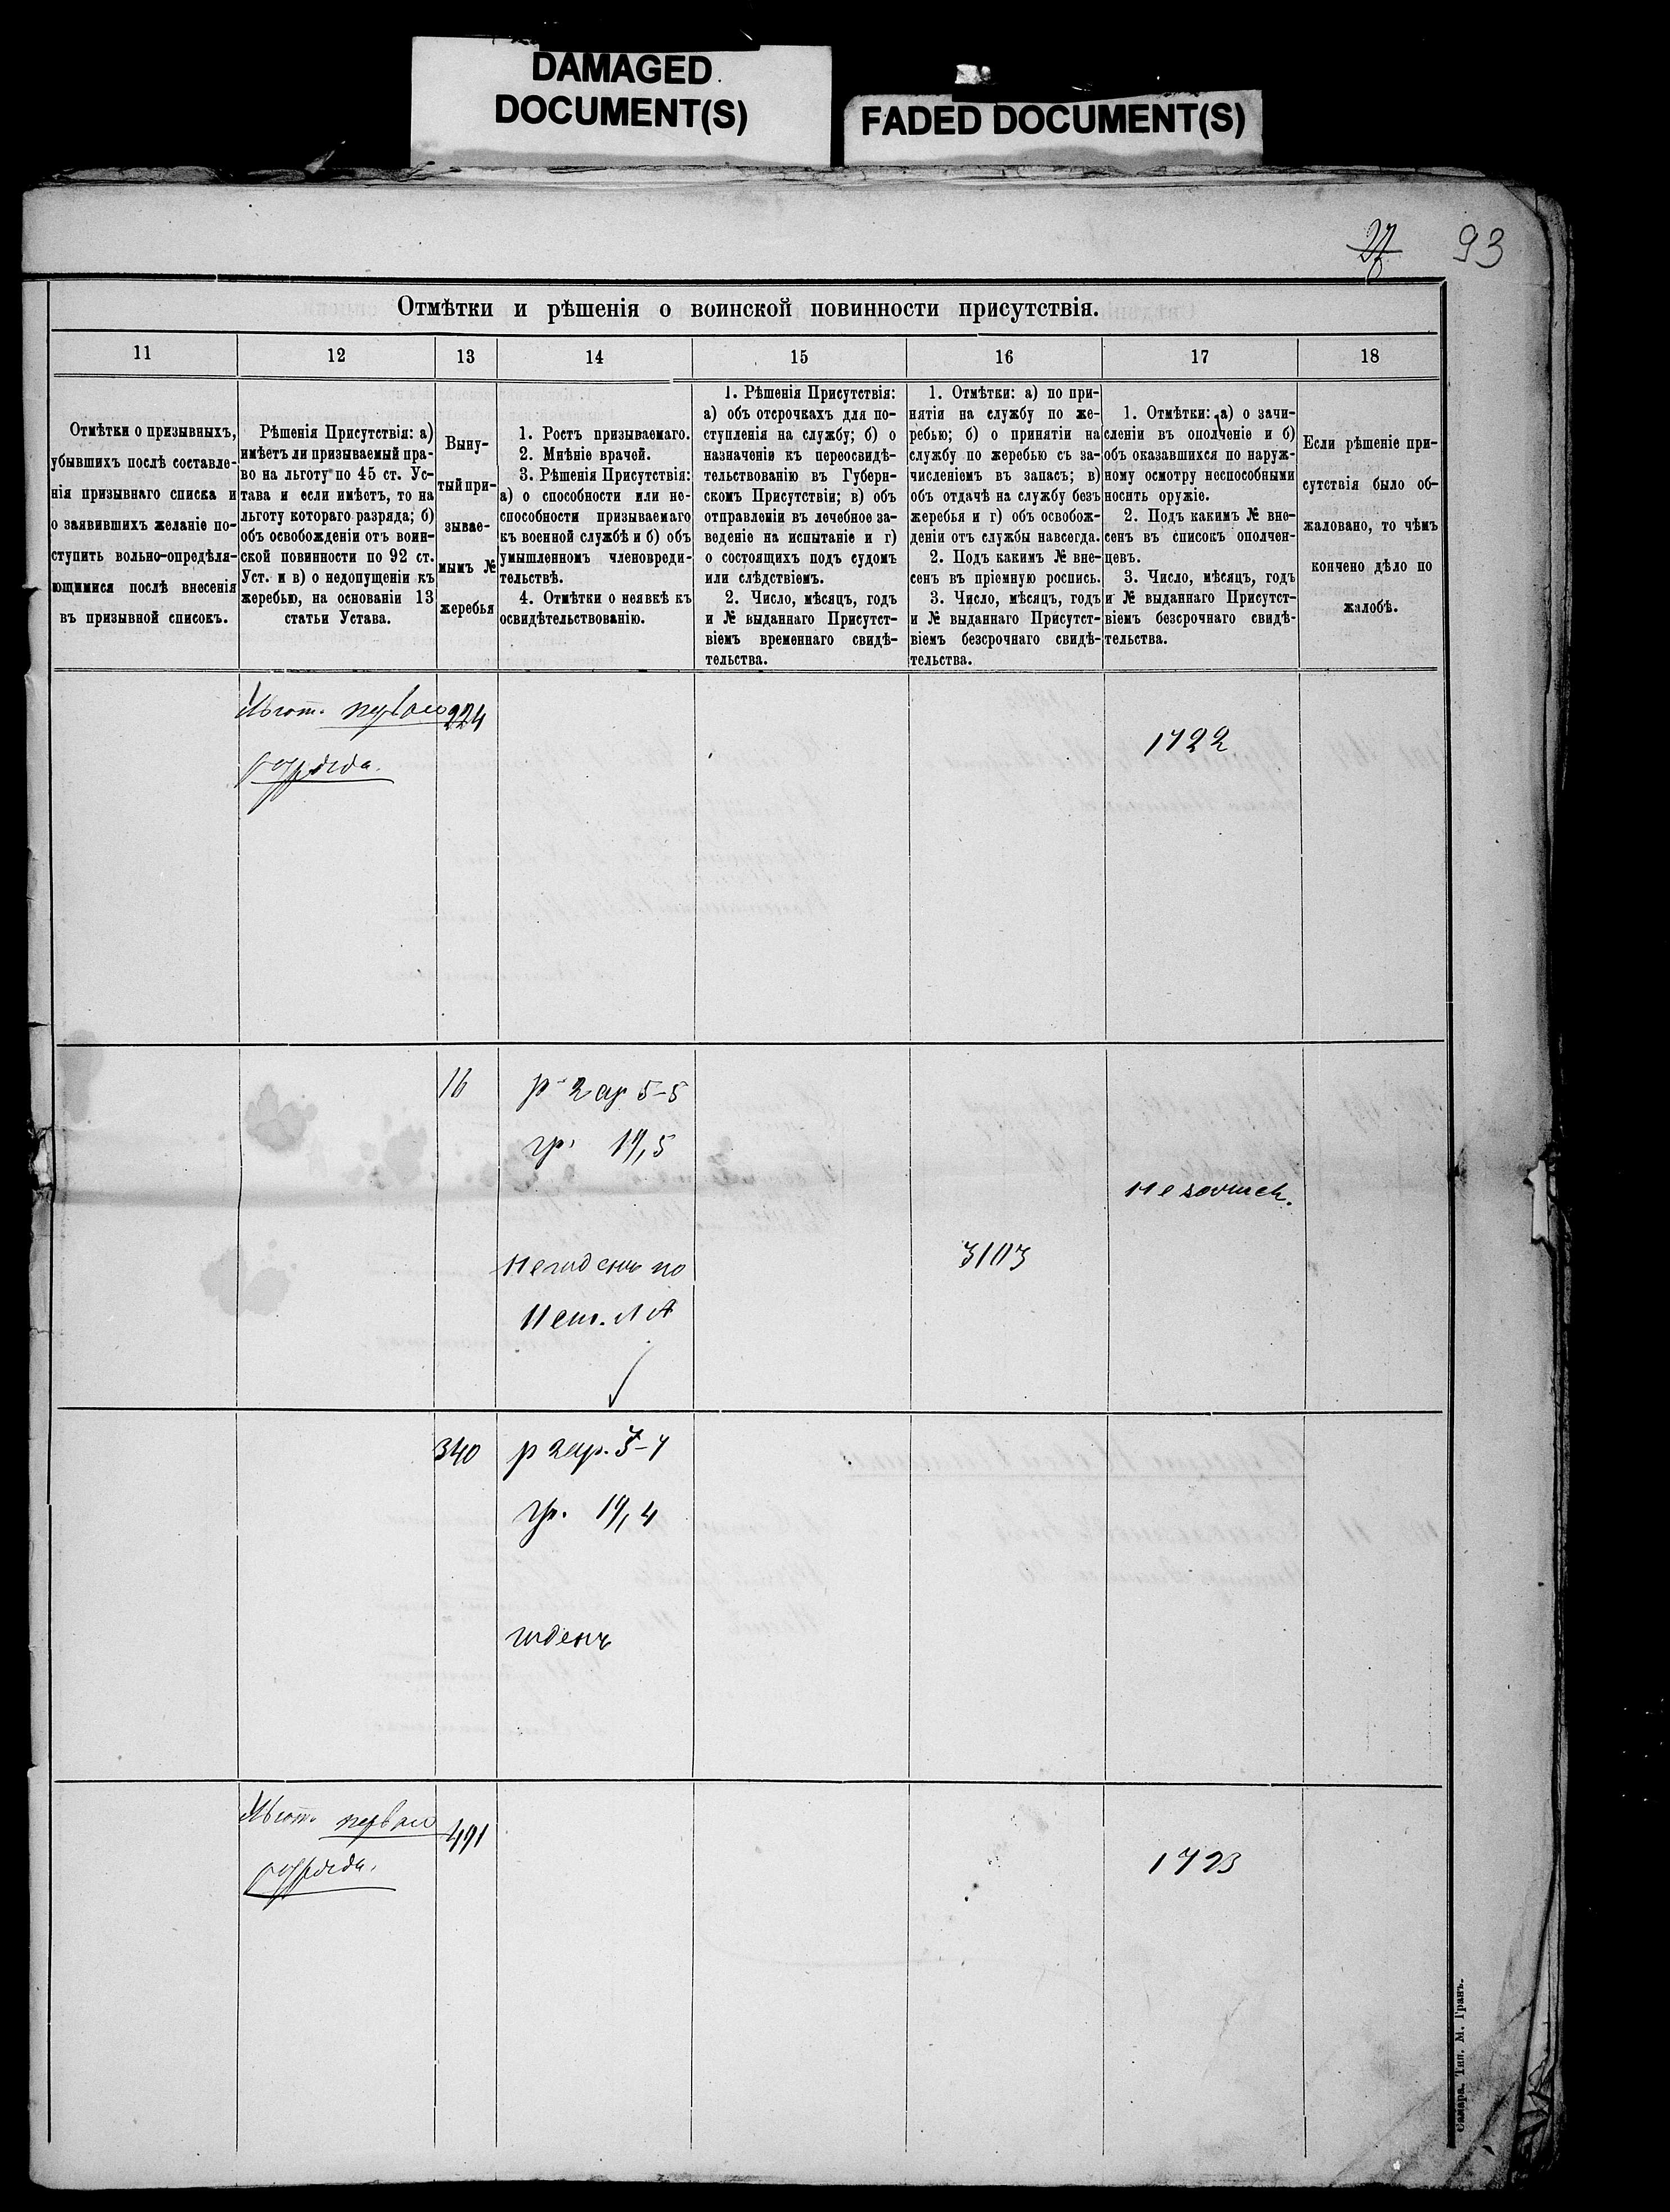 DAMAGED
DOCUMENT(S)
FADED DOCUMENT(S)
27 93
Отмѣтки и рѣшенія о воинской повинности присутствія.
11 12 13 14 15 16 17 18
Отмѣтки о призывныхъ,
убывшихъ послѣ составле-
нія призывнаго списка и
о заявившихъ желаніе по-
ступить вольно-опредѣля-
ющимися послѣ внесенія
въ призывной списокъ.
Рѣшенія Присутствія: а)
имѣетъ ли призываемый пра-
во на льготу по 45 ст. Ус-
тава и если имѣетъ, то на
льготу котораго разряда; б)
объ освобожденіи отъ воин-
ской повинности по 92 ст.
Уст. и в) о недопущеніи къ
жеребью, на основаніи 13
статьи Устава.
Выну-
тый при-
зывае-
мымъ №
жеребья
1. Ростъ призываемаго.
2. Мнѣніе врачей.
3. Рѣшенія Присутствія:
а) о способности или не-
способности призываемаго
къ военной службѣ и б) объ
умышленномъ членовреди-
тельствѣ.
4. Отмѣтки о неявкѣ къ
освидѣтельствованію.
1. Рѣшенія Присутствія:
а) объ отсрочкахъ для по-
ступленія на службу; б) о
назначеніи къ переосвидѣ-
тельствованію въ Губерн-
скомъ Присутствіи; в) объ
отправленіи въ лечебное за-
веденіе на испытаніе и г)
о состоящихъ подъ судомъ
или слѣдствіемъ.
2. Число, мѣсяцъ, годъ
и № выданнаго Присутст-
віемъ временнаго свидѣ-
тельства.
1. Отмѣтки: а) по при-
нятіи на службу по же-
ребью; б) о принятіи на
службу по жеребью съ за-
численіемъ въ запасъ; в)
объ отдачѣ на службу безъ
жеребья и г) объ освобож-
деніи отъ службы навсегда.
2. Подъ какимъ № вне-
сенъ въ пріемную роспись.
3. Число, мѣсяцъ, годъ
и № выданнаго Присутст-
віемъ безсрочнаго свидѣ-
тельства.
1. Отмѣтки: а) о зачи-
сленіи въ ополченіе и б)
объ оказавшихся по наруж-
ному осмотру неспособными
носить оружіе.
2. Подъ какимъ № вне-
сенъ въ списокъ ополчен-
цевъ.
3. Число, мѣсяцъ, годъ
и № выданнаго Присутст-
віемъ безсрочнаго свидѣ-
тельства.
Если рѣшеніе при-
сутствія было об-
жаловано, то чѣмъ
кончено дѣло по
жалобѣ.
Льгот. перваго 224
разряда. 1722
16 р 2 ар 5-5
гр. 19,5
Негоденъ по
340 р 2 ар.
гр. 19,4
годенъ
Льгот. перваго 491
разряда. 1723
Самара. Тип. М. Гранъ.